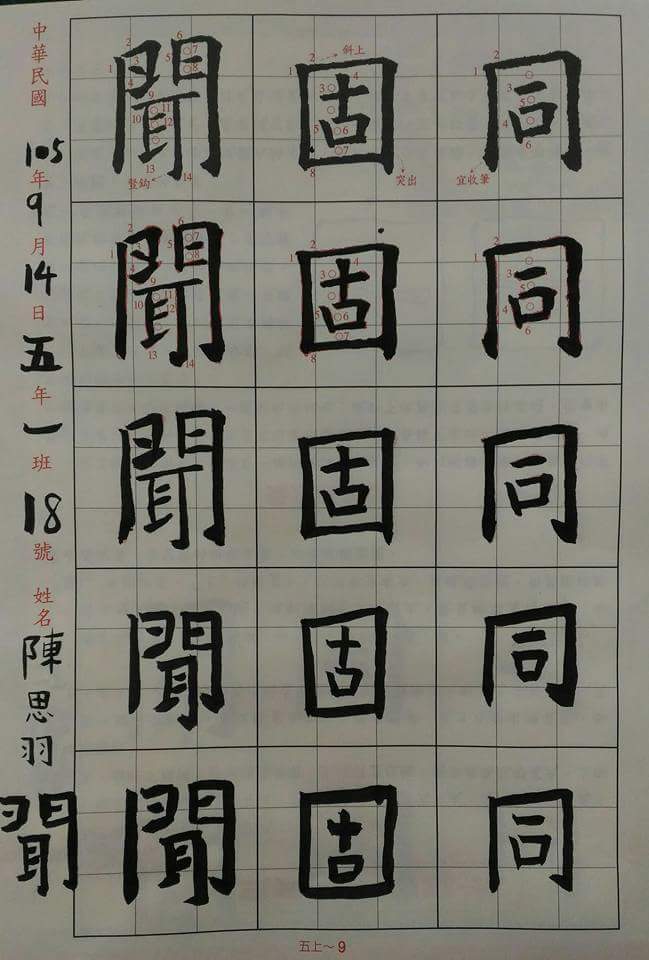 同同同同同
宜收筆
固固固固固
斜上
突出
聞聞聞聞聞
豎鈎
中華民國105年9月14日五年一班18號 姓名陳思羽
聞
五上~9